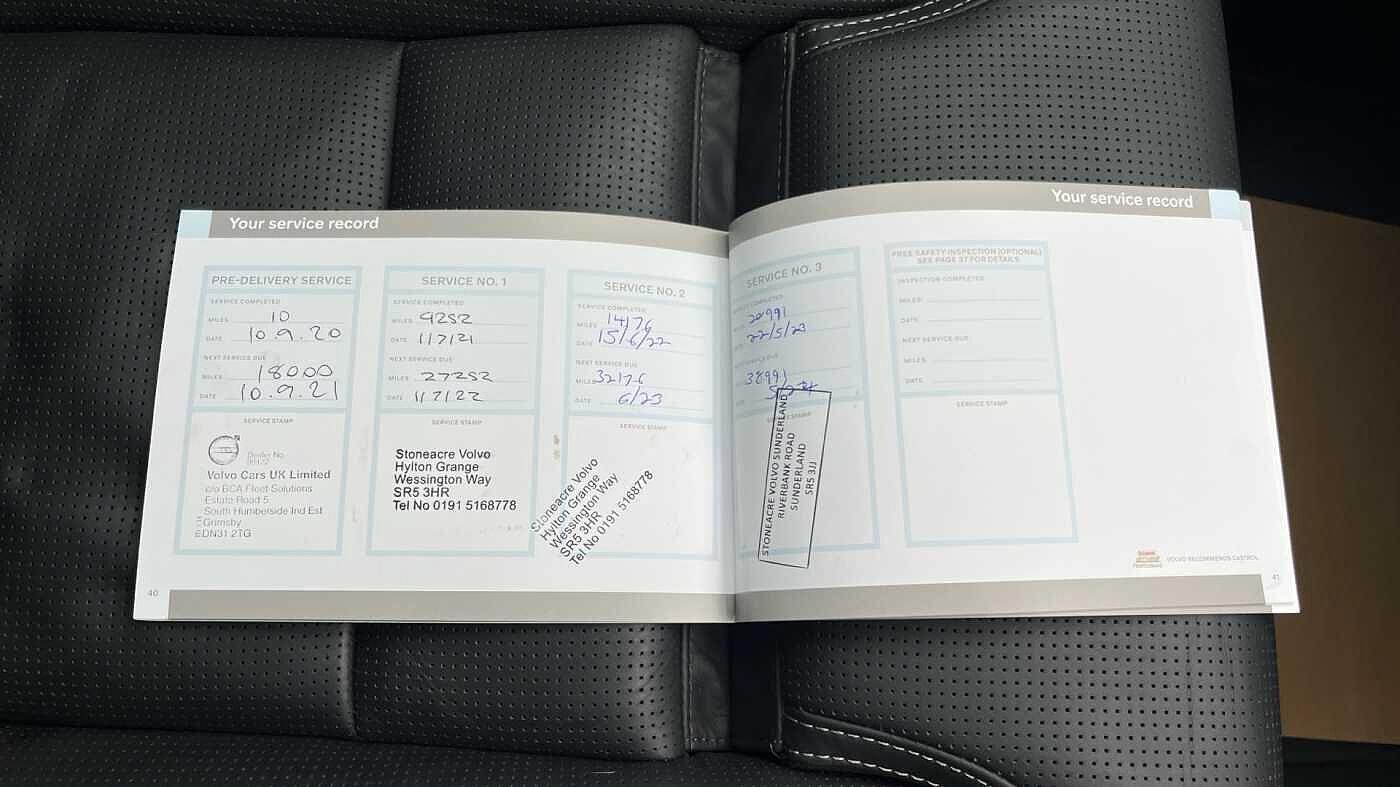 Your service record
PRE-DELIVERY SERVICE
SERVICE COMPLETED
MILES 10
DATE 10.9.20
NEXT SERVICE DUE
MILES 18000
DATE 10.9.21
SERVICE STAMP
Dealer No.
Volvo Cars UK Limited
c/o BCA Fleet Solutions
Estate Road 5
South Humberside Ind Est
Grimsby
DN31 2TG
SERVICE NO. 1
SERVICE COMPLETED
MILES 9252
DATE 1/7/21
NEXT SERVICE DUE
MILES 27252
DATE 1/7/22
SERVICE STAMP
Stoneacre Volvo
Hylton Grange
Wessington Way
SR5 3HR
Tel No 0191 5168778
SERVICE NO. 2
SERVICE COMPLETED
MILES 14176
DATE 15/6/22
NEXT SERVICE DUE
MILES 32176
DATE 6/23
SERVICE STAMP
Stoneacre Volvo
Hylton Grange
Wessington Way
SR5 3HR
Tel No 0191 5168778
40
Your service record
SERVICE NO. 3
COMPLETED
20991
22/5/23
DUE
38991
STAMP
STONEACRE VOLVO SUNDERLAND
RIVERBANK ROAD
SUNDERLAND
SR5 3JJ
FREE SAFETY INSPECTION (OPTIONAL)
SEE PAGE 37 FOR DETAILS
INSPECTION COMPLETED
MILES
DATE
NEXT SERVICE DUE
MILES
DATE
SERVICE STAMP
VOLVO RECOMMENDS CASTROL
41